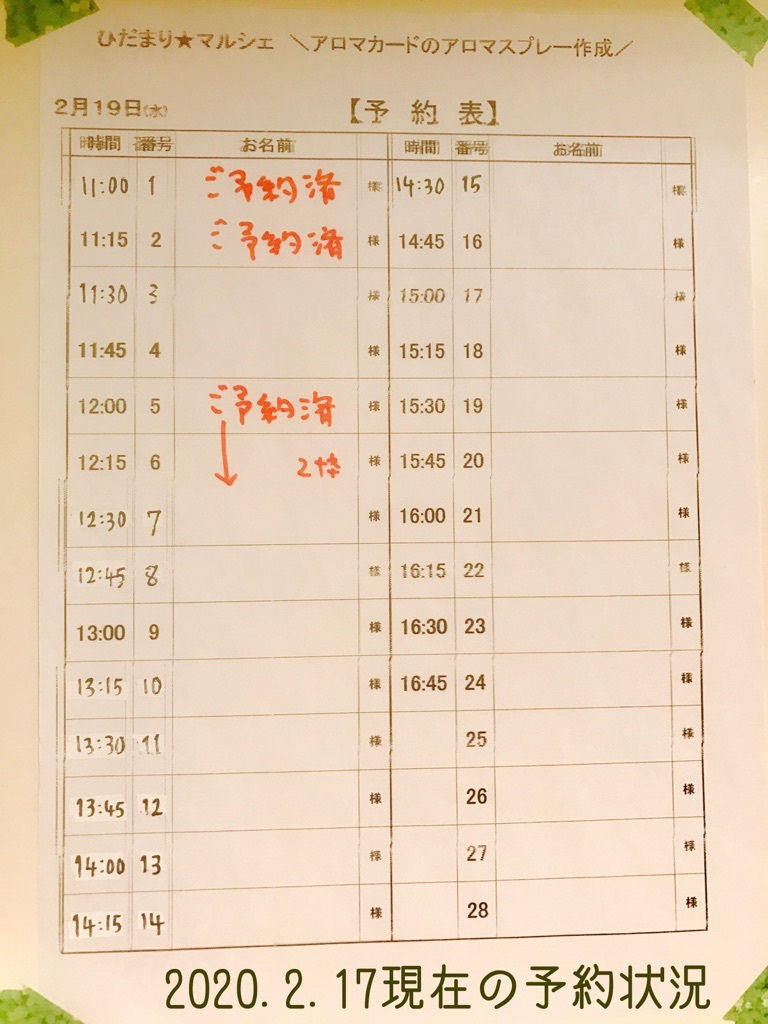 ひだまり★マルシェ ＼アロマカードのアロマスプレー作成／
2月19日(水) 【予約表】
時間 番号 お名前 時間 番号 お名前
11:00 1 ご予約済 様 14:30 15 様
11:15 2 ご予約済 様 14:45 16 様
11:30 3 様 15:00 17 様
11:45 4 様 15:15 18 様
12:00 5 ご予約済 様 15:30 19 様
12:15 6 ↓ 2枠 様 15:45 20 様
12:30 7 様 16:00 21 様
12:45 8 様 16:15 22 様
13:00 9 様 16:30 23 様
13:15 10 様 16:45 24 様
13:30 11 様 25 様
13:45 12 様 26 様
14:00 13 様 27 様
14:15 14 様 28 様
2020.2.17現在の予約状況